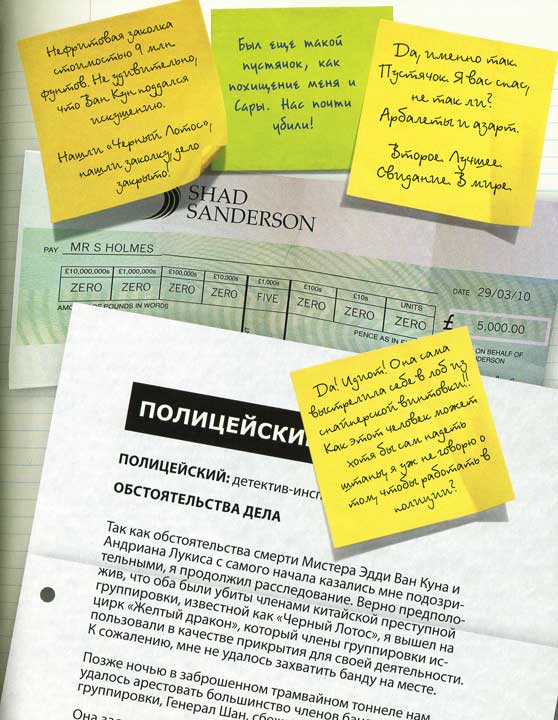 Нефритовая заколка
стоимостью 9 млн.
фунтов. Не удивительно,
что Ван Кун поддался
искушению.
Нашли «Черный Лотос»,
нашли заколку, дело
закрыто!
Был еще такой
пустячок, как
похищение меня и
Сары. Нас почти
убили!
Да, именно так.
Пустячок. Я вас спас,
не так ли?
Арбалеты и азарт.
Второе Лучшее
Свидание В мире.
SHAD
SANDERSON
PAY MR S HOLMES
DATE 29/03/10
£10,000,000s £1,000,000s £100,000s £10,000s £1,000s £100s £10s UNITS
ZERO ZERO ZERO ZERO FIVE ZERO ZERO ZERO
£ 5,000.00
POUNDS IN WORDS
PENCE AS IN
ON BEHALF OF
Да! Идиот! Она сама
выстрелила себе в лоб из
снайперской винтовки!!
Как этот человек может
хотя бы сам надеть
штаны, я уж не говорю о
том, чтобы работать в
полиции?
ПОЛИЦЕЙСКИ
ПОЛИЦЕЙСКИЙ: детектив-инсп
ОБСТОЯТЕЛЬСТВА ДЕЛА
Так как обстоятельства смерти Мистера Эдди Ван Куна и
Андриана Лукиса с самого начала казались мне подозри-
тельными, я продолжил расследование. Верно предполо-
жив, что оба были убиты членами китайской преступной
группировки, известной как «Черный Лотос», я вышел на
цирк «Желтый дракон», который члены группировки ис-
пользовали в качестве прикрытия для своей деятельности.
К сожалению, мне не удалось захватить банду на месте.
Позже ночью в заброшенном трамвайном тоннеле нам
удалось арестовать большинство членов бан
группировки, Генерал Шан, сбеж